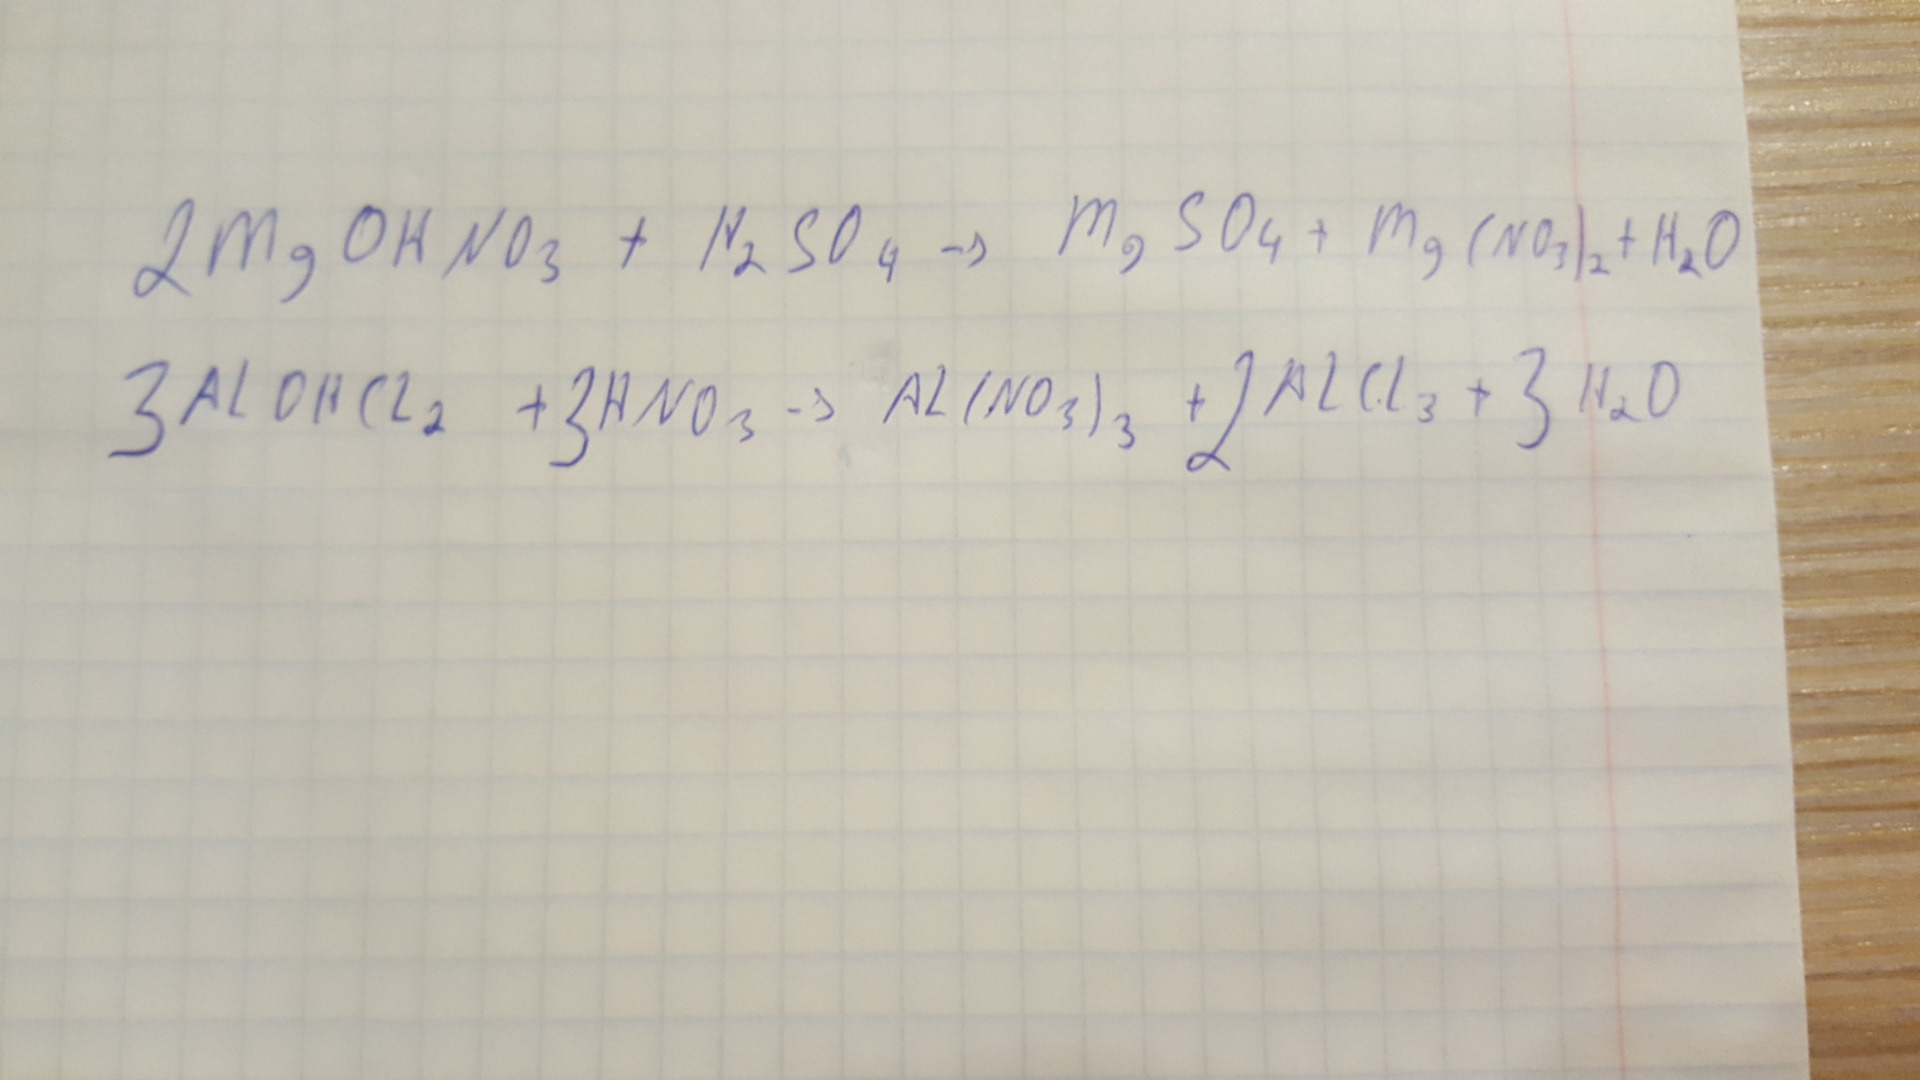 2MgOHNO₃ + H₂SO₄ → MgSO₄ + Mg(NO₃)₂ + H₂O
3AlOHCl₂ + 3HNO₃ → Al(NO₃)₃ + 2AlCl₃ + 3H₂O